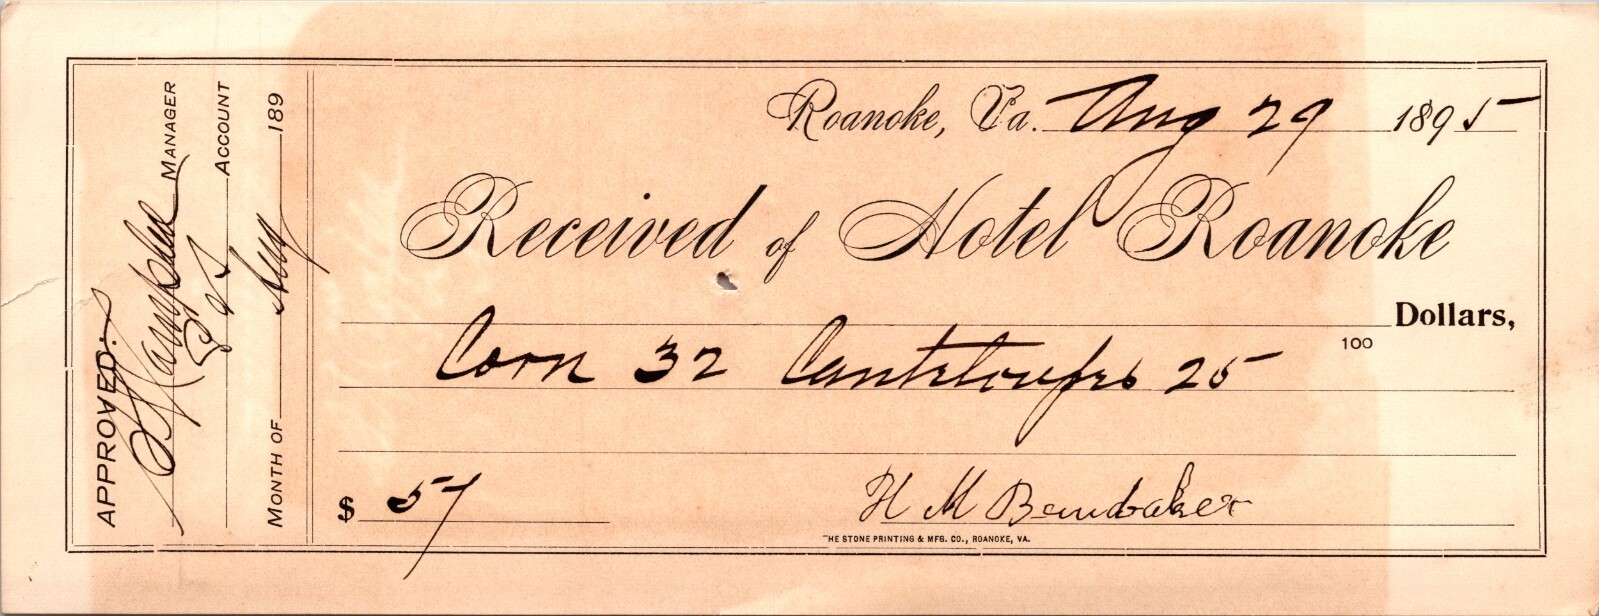 APPROVED:
MANAGER
ACCOUNT
MONTH OF Aug 189
Roanoke, Va. Aug 29 1895
Received of Hotel Roanoke
Dollars,
100
Corn 32 Canteloupes 25
$ 57
H M Brubaker
THE STONE PRINTING & MFG. CO., ROANOKE, VA.